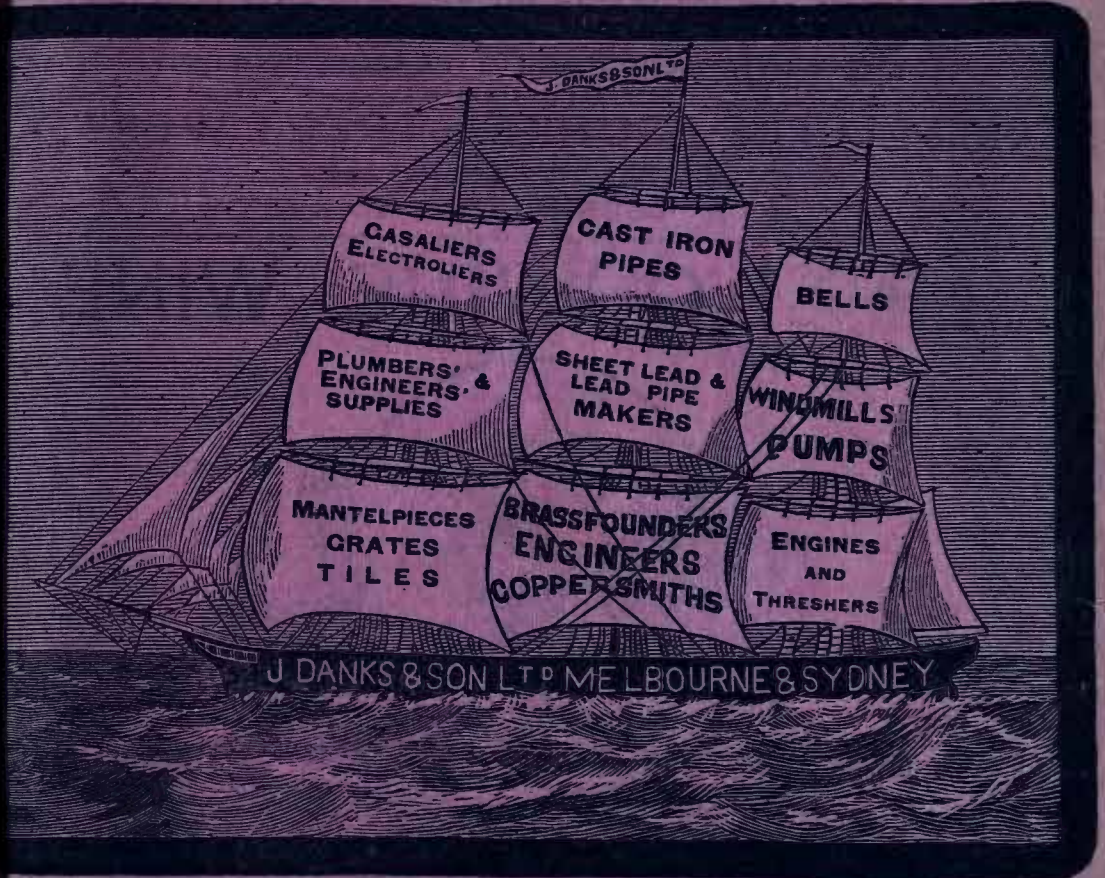 J. DANKS & SON LTD
GASALIERS
ELECTROLIERS
CAST IRON
PIPES
BELLS
PLUMBERS' &
ENGINEERS'
SUPPLIES
SHEET LEAD &
LEAD PIPE
MAKERS
WINDMILLS
PUMPS
MANTELPIECES
GRATES
TILES
BRASSFOUNDERS
ENGINEERS
COPPERSMITHS
ENGINES
AND
THRESHERS
J DANKS & SON LTD MELBOURNE & SYDNEY